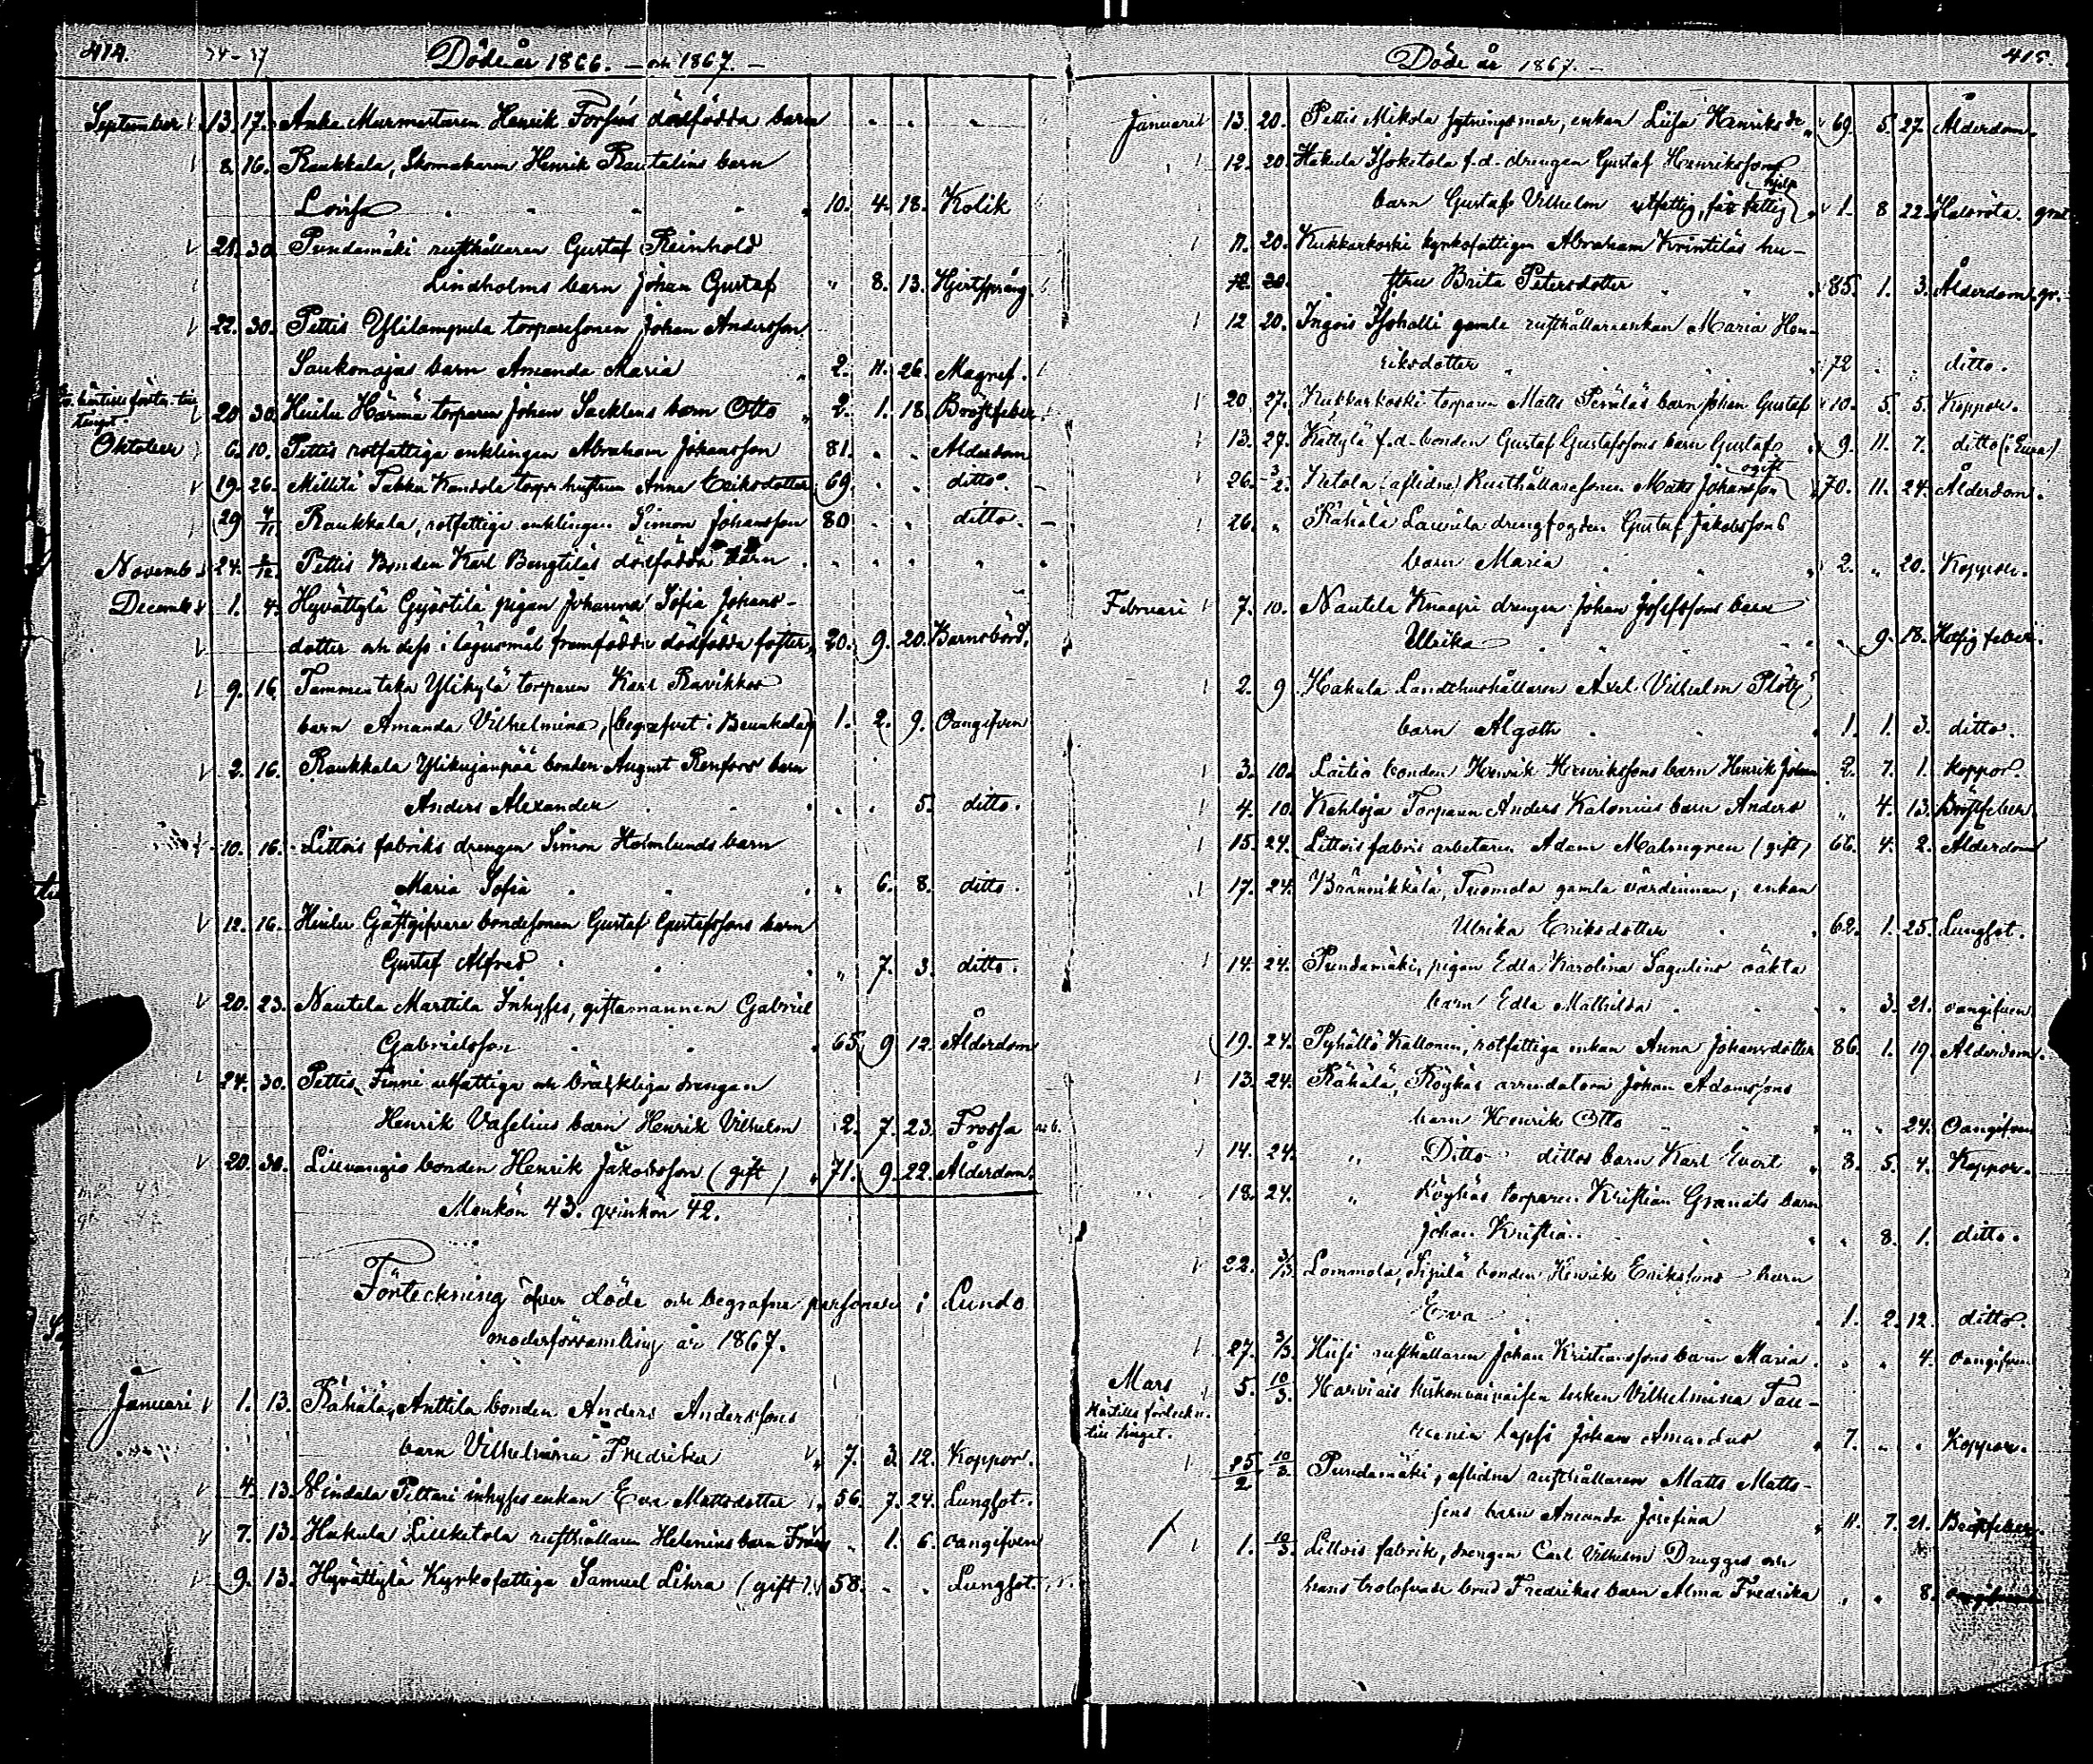 414. 34-37 Döde år 1866. – och 1867. –
September 13. 17. Anka Murmästaren Henrik Forséns dödfödda barn
8. 16. Raukkala, Skomakaren Henrik Rautalins barn
Lovisa 10. 4. 18. Kolik
21. 30. Pundamäki rusthållaren Gustaf Reinhold
Lindholms barn Johan Gustaf " 8. 13. Hjertsprång.
22. 30. Pettis torparesonen Johan Andersson
Saukonojas barn Amanda Maria 2. 11. 26. Magnef.
20. 30. Heulu Härmä torparen Johan Sacklens barn Otto 2. 1. 18. Bröstfeber
tinget.
Oktober 6. 10. Pettis rotfattiga enklingen Abraham Johansson 81. " " Ålderdom
19. 26. Millilä Takku Kandola torp. hustrun Anna Eriksdotter 69. " " ditto.
29 4/11. Raukkala, rotfattiga enklingen Simon Johansson 80 " " ditto.
Novemb. 24. 2/12. Pettis Bonden Karl Bengtiläs dödfödda barn
Decemb. 1. 4. Hyvättylä Gyöstilä pigan Johanna Sofia Johans-
dotter och dess i lägersmål framfödda dödfödda foster 20. 9. 20. Barnsbörd.
9. 16. Tammentaka Ylikylä torparen Karl Ravikkos
barn Amanda Vilhelmina, (begrafvet i ) 1. 2. 9. Oangifven
2. 16. Raukkala Ylikujanpää bonden August Renfors barn
Anders Alexander 5. ditto.
10. 16. Littois fabriks drengen Simon Holmlunds barn
Maria Sofia " 6. 8. ditto.
12. 16. Heulu Gästgifvare bondesonen Gustaf Gustafssons barn
Gustaf Alfred " 7. 3. ditto.
20. 23. Nautela Marttila Inhyses, giftamannen Gabriel
Gabrielsson 65. 9. 12. Ålderdom
24. 30. Pettis, Finni utfattiga och bräckliga drengen
Henrik Vaselius barn Henrik Vilhelm 2. 7. 23. Frossa
20. 30. Liuvangis bonden Henrik Jakobsson (gift) 71. 9. 22. Ålderdom.
Mankön 43. qvinkön 42.
Förteckning öfver döde och begrafne personer i Lundo
moderförsamling år 1867.
Januari 1. 13. Rähälä, Anttila bonden Anders Anderssons
barn Vilhelmina Fredrika 7. 3. 12. Koppor.
4. 13. Vindala Pettari inhyses enkan Eva Mattsdotter 56. 7. 24. Lungsot.
7. 13. Hakula Lillketola rusthållaren Helenius barn Frans " 1. 6. oangifven
9. 13. Hyvättylä Kyrkofattiga Samuel Lihra (gift) 58. " " Lungsot.
Döde år 1867. – 415.
Januari 13. 20. Pettis Mikola sytningsmor, enkan Liisa Henriksdr 69. 5. 27. Ålderdom.
12. 20. Hakula Isoketola f.d. drengen Gustaf Henrikssons
barn Gustaf Vilhelm utfattig, får fattig hjelp 1. 8. 22. Halsröta.
11. 20. Kukkarkoski kyrkofattigen Abraham Krintiläs hu-
12. 20. stru Brita Petersdotter 85. 1. 3. Ålderdom. gr.
12 20. Ingois Isohalli gamle rusthållareenkan Maria Hen-
riksdotter 72 " " ditto.
20. 27. Kukkarkoski torparen Matts Periläs barn Johan Gustaf 10. 5. 5. Koppor.
13. 27. Kättylä f.d. bonden Gustaf Gustafssons barn Gustaf 9. 11. 7. ditto (i Eura)
26. 3/2. Ketola (aflidne) Rusthållaresonen Matts Johansson ogift 70. 11. 24. Ålderdom.
26. " Rähälä Lauvila drengfogden Gustaf Jakobssons
barn Maria 2. " 20. Koppor.
Februari 7. 10. Nautela Knaapi drengen Johan Josefssons barn
Ulrika " 9. 18. Hetsig feber.
2. 9. Hakula Landthushållaren Axel Vilhelm Plöty
barn Algoth 1. 1. 3. ditto.
3. 10. Laitio bonden Henrik Henrikssons barn Henrik Johan 2. 7. 1. koppor.
4. 10. Kahloja Torparen Anders Kalonius barn Anders " 4. 13. Bröstfeber.
15. 24. Littois fabriks arbetaren Adam Malmgren (gift) 66. 4. 2. Ålderdom
17. 24. Brännikkälä, Tuomola gamla värdinnan, enkan
Ulrika Eriksdotter 62. 1. 25. Lungsot.
14. 24. Pundamäki, pigan Edla Karolina Sagulins oäkta
barn Edla Mathilda " 3. 21. oangifven
19. 24. Pyhältö Kallonen, rotfattiga enkan Anna Johansdotter 86. 1. 19. Ålderdom.
13. 24. Rähälä, Röykäs arrendatorn Johan Adamssons
barn Henrik Otto " " 24. Oangifven
14. 24. " Ditto dittos barn Karl Evert 3. 5. 4. Koppor.
18. 24. " Röykäs torparen Kristian Granats barn
Johan Kristian " 8. 1. ditto.
22. 3/3. Lommola, Sipilä bonden Henrik Erikssons barn
Eva 1. 2. 12. ditto.
27. 3/3. Hiisi rusthållaren Johan Kristianssons barn Maria " " 4. oangifven
Mars 5. 10/3. Harvais Vilhelmina Tau-
till tinget. lapsi Johan Amandus 7. " " Koppor.
25/2 10/3. Pundamäki, aflidne rusthållaren Matts Matts-
sons barn Amanda Josefina 11. 7. 21. Bröstfeber.
1. 10/3. Littois fabrik, drengen Carl Vilhelm Drugges och
hans trolofvade brud Fredrikas barn Alma Fredrika " " 8. oangifven